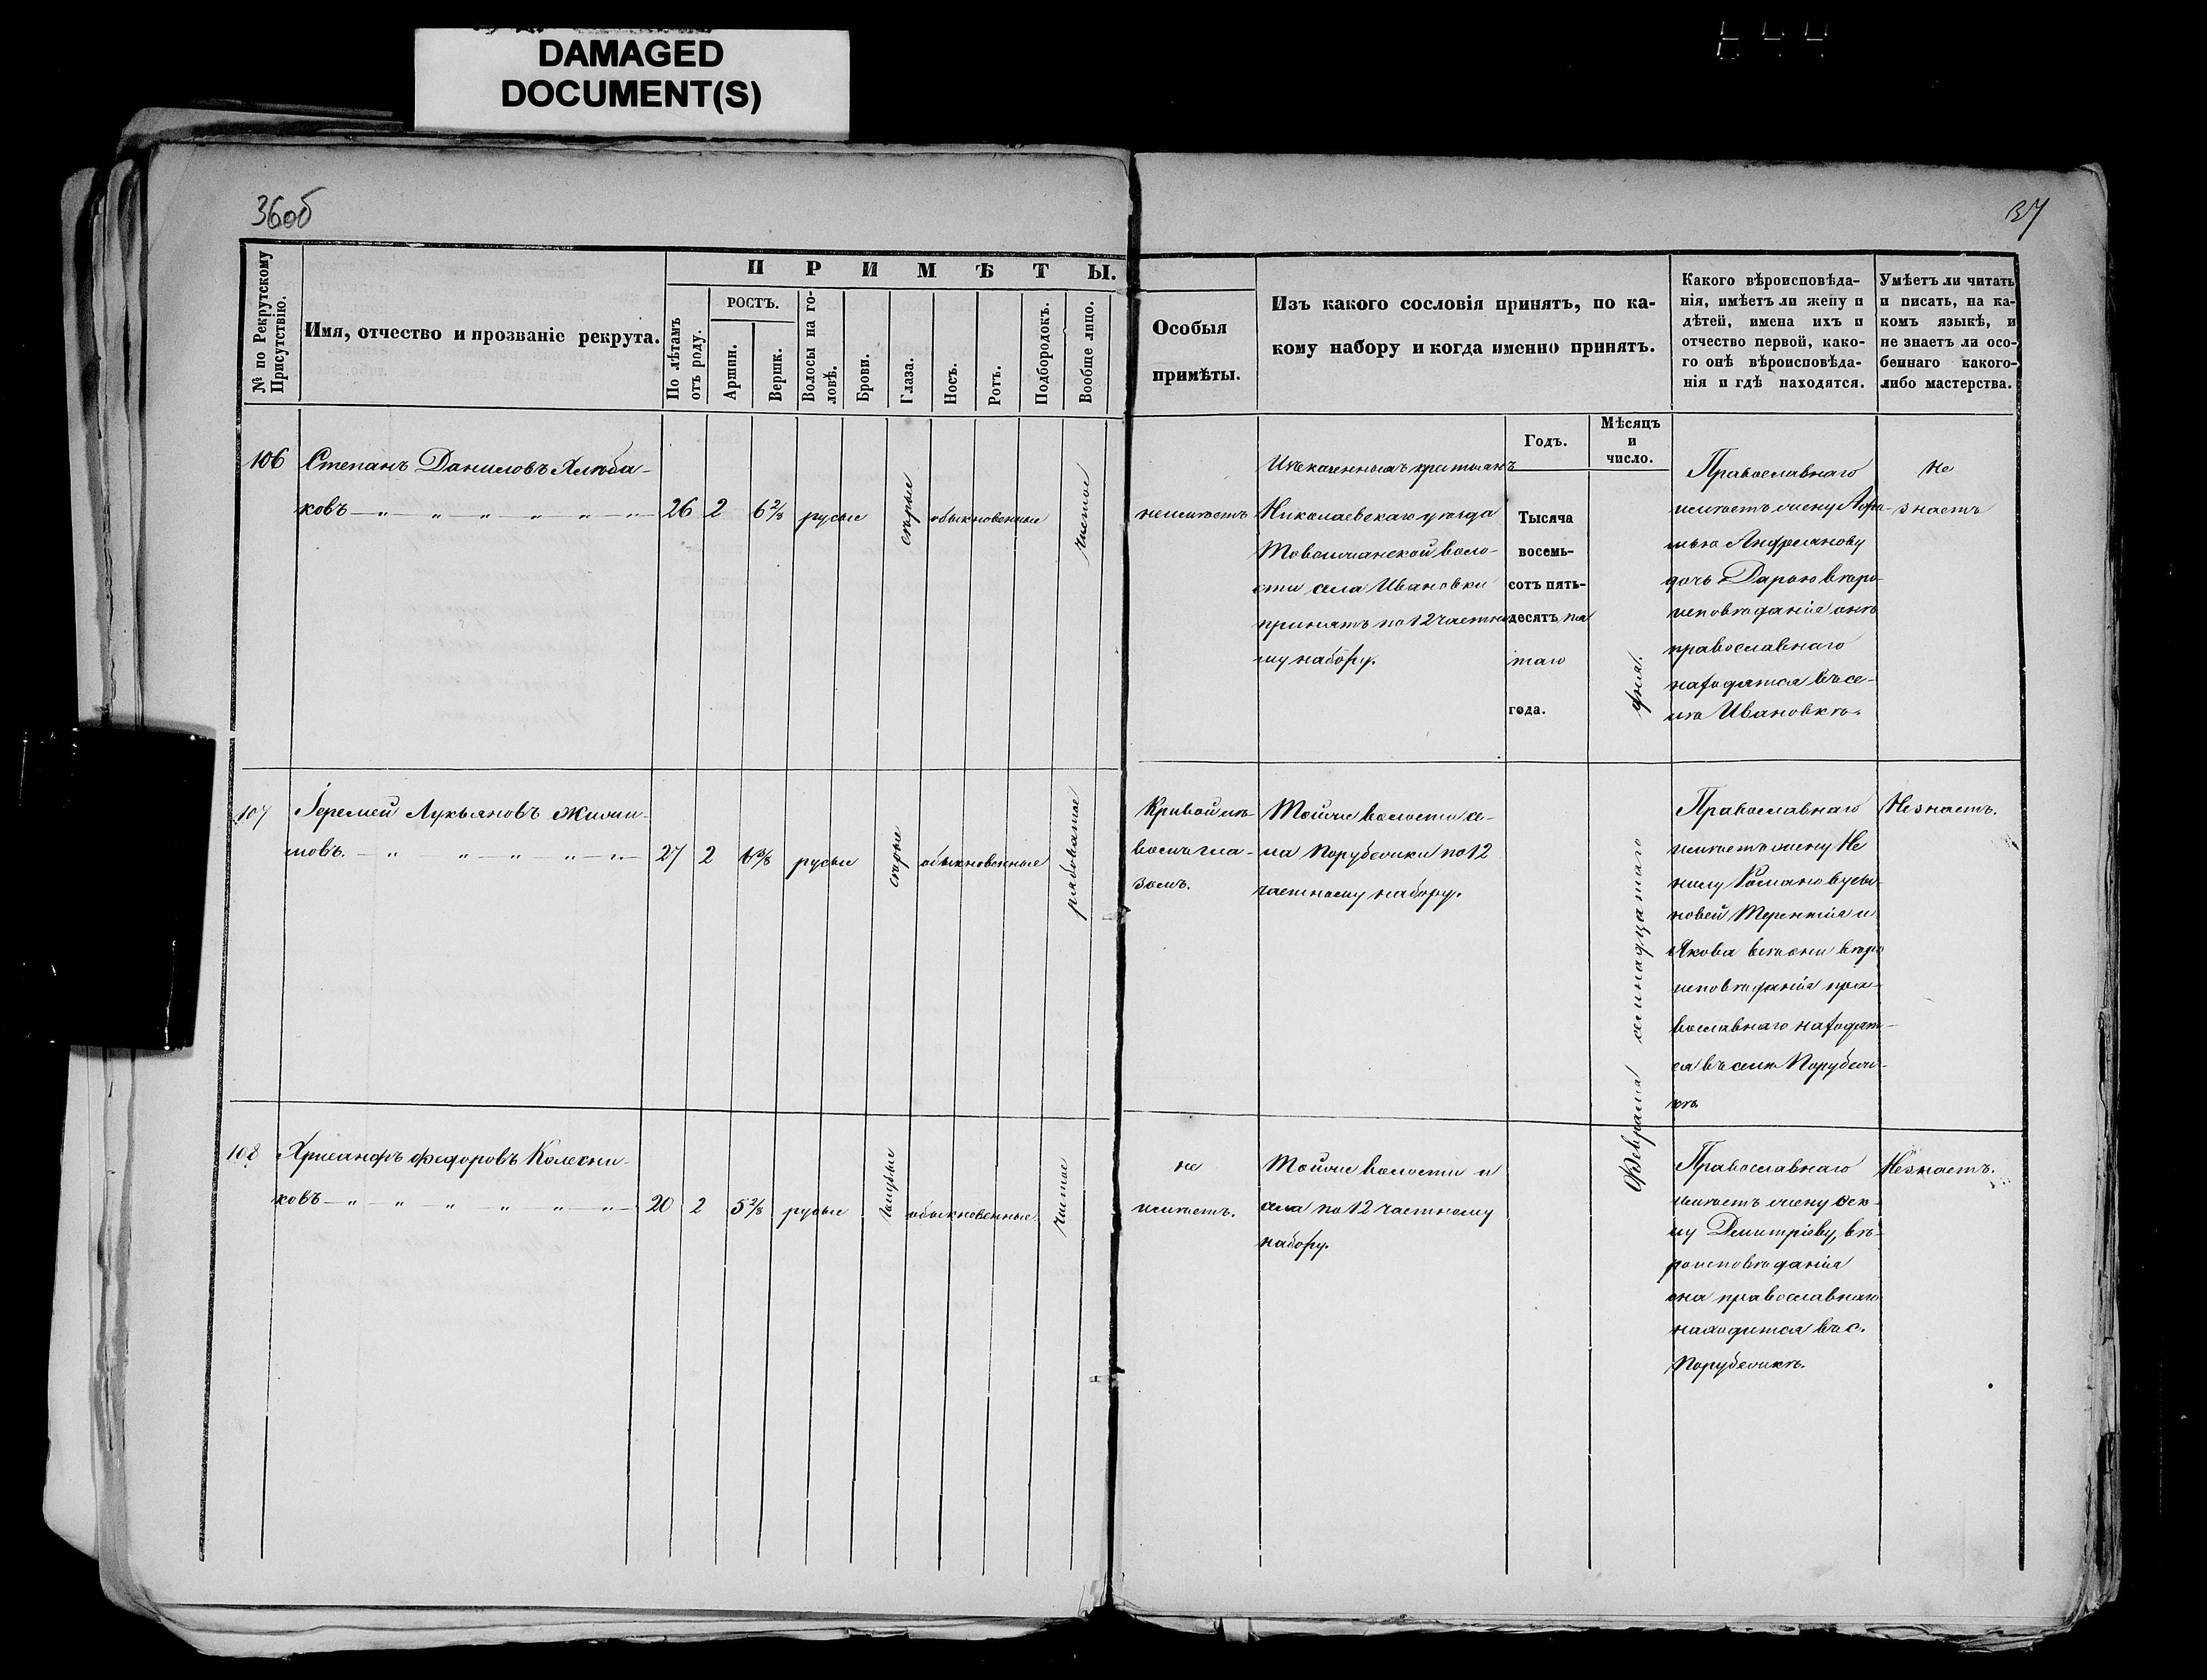 DAMAGED
DOCUMENT(S)
36об
37
№ по Рекрутскому
Присутствію.
Имя, отчество и прозваніе рекрута.
ПРИМѢТЫ.
По лѣтамъ
отъ роду.
РОСТЪ.
Аршин.
Вершк.
Волосы на го-
ловѣ.
Брови.
Глаза.
Носъ.
Ротъ.
Подбородокъ.
Вообще лицо.
Особыя
примѣты.
Изъ какого сословія принятъ, по ка-
кому набору и когда именно принятъ.
Какого вѣроисповѣда-
нія, имѣетъ ли жену и
дѣтей, имена ихъ и
отчество первой, како-
го онѣ вѣроисповѣда-
нія и гдѣ находятся.
Умѣетъ ли читать
и писать, на ка-
комъ языкѣ, и
не знаетъ ли осо-
беннаго какого-
либо мастерства.
Годъ.
Мѣсяцъ
и
число.
106 Степанъ Даниловъ Хлѣба-
ковъ — „ „ „ „ „ „ — 26 2 6 2/8 русые сѣрые обыкновенные чистое
неимѣетъ
крестьянъ
Николаевскаго уѣзда
воло-
сти села Ивановки
принятъ по 12 частно
му набору.
Тысяча
восемь-
сотъ пять-
десятъ пя
таго
года.
Февраля семнадцатаго дня.
Православнаго
имѣетъ жену
Андреянову
дочь Дарью вѣро-
исповѣданія онѣ
православнаго
находятся въ се-
лѣ Ивановкѣ.
Не
знаетъ
107 Іеремей Лукьяновъ
мовъ. — „ „ „ „ „ — 27 2 русые сѣрые обыкновенные рябоватое
Кривой лѣ-
вымъ гла-
зомъ.
Тойже волости се-
ла Порубежки по 12
частному набору.
Православнаго
имѣетъ жену Не
нилу Романову сы-
новей Терентія и
Якова всѣ они вѣро
исповѣданія пра-
вославнаго находят-
ся въ селѣ Порубеж-
кѣ.
Незнаетъ.
108 Хрисанфъ Федоровъ Колесни-
ковъ — „ „ „ „ „ „ — 20 2 русые голубые обыкновенные чистое
не
имѣетъ.
Тойже волости и
села по 12 частному
набору.
Православнаго
имѣетъ жену Фек-
лу Дмитріеву, вѣ-
роисповѣданія
она православнаго
находится въ с.
Порубежкѣ.
Незнаетъ.